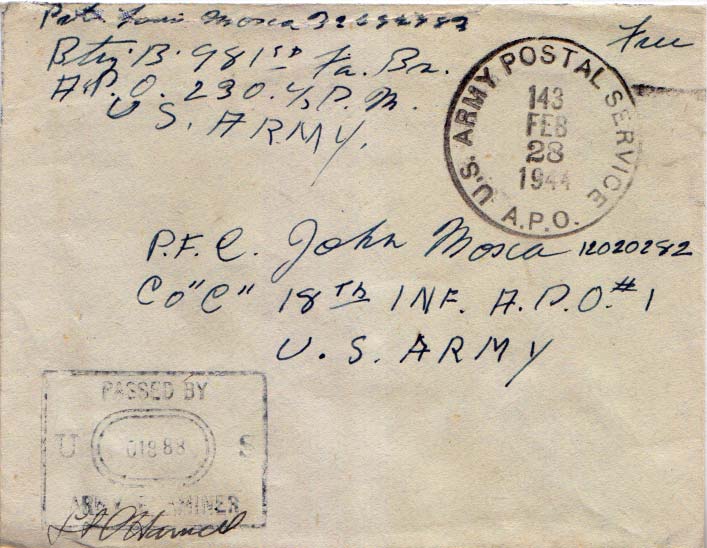 Pvt. Louis Mosca
Bty. B. 981st Fa. Bn.
A.P.O. 230. % P.M.
U.S. ARMY.
Free
U.S. ARMY POSTAL SERVICE
143
FEB
28
1944
A.P.O.
P.F.C. John Mosca 12020282
Co "C" 18th INF. A.P.O. #1
U.S. ARMY
PASSED BY
U 01988 S
ARMY EXAMINER